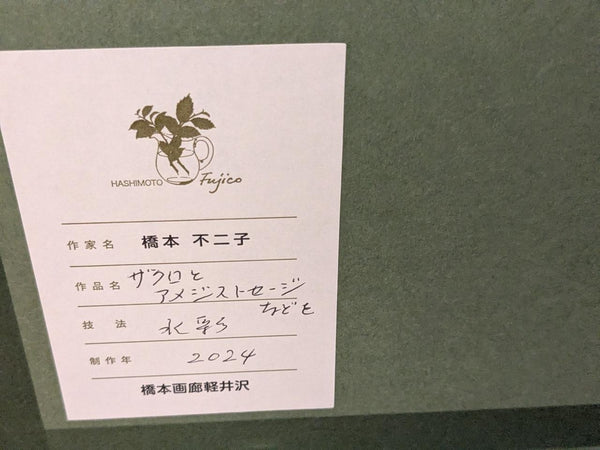 HASHIMOTO Fujico
作家名 橋本 不二子
作品名 ザクロと
アメジストセージ
などを
技 法 水彩
制作年 2024
橋本画廊軽井沢